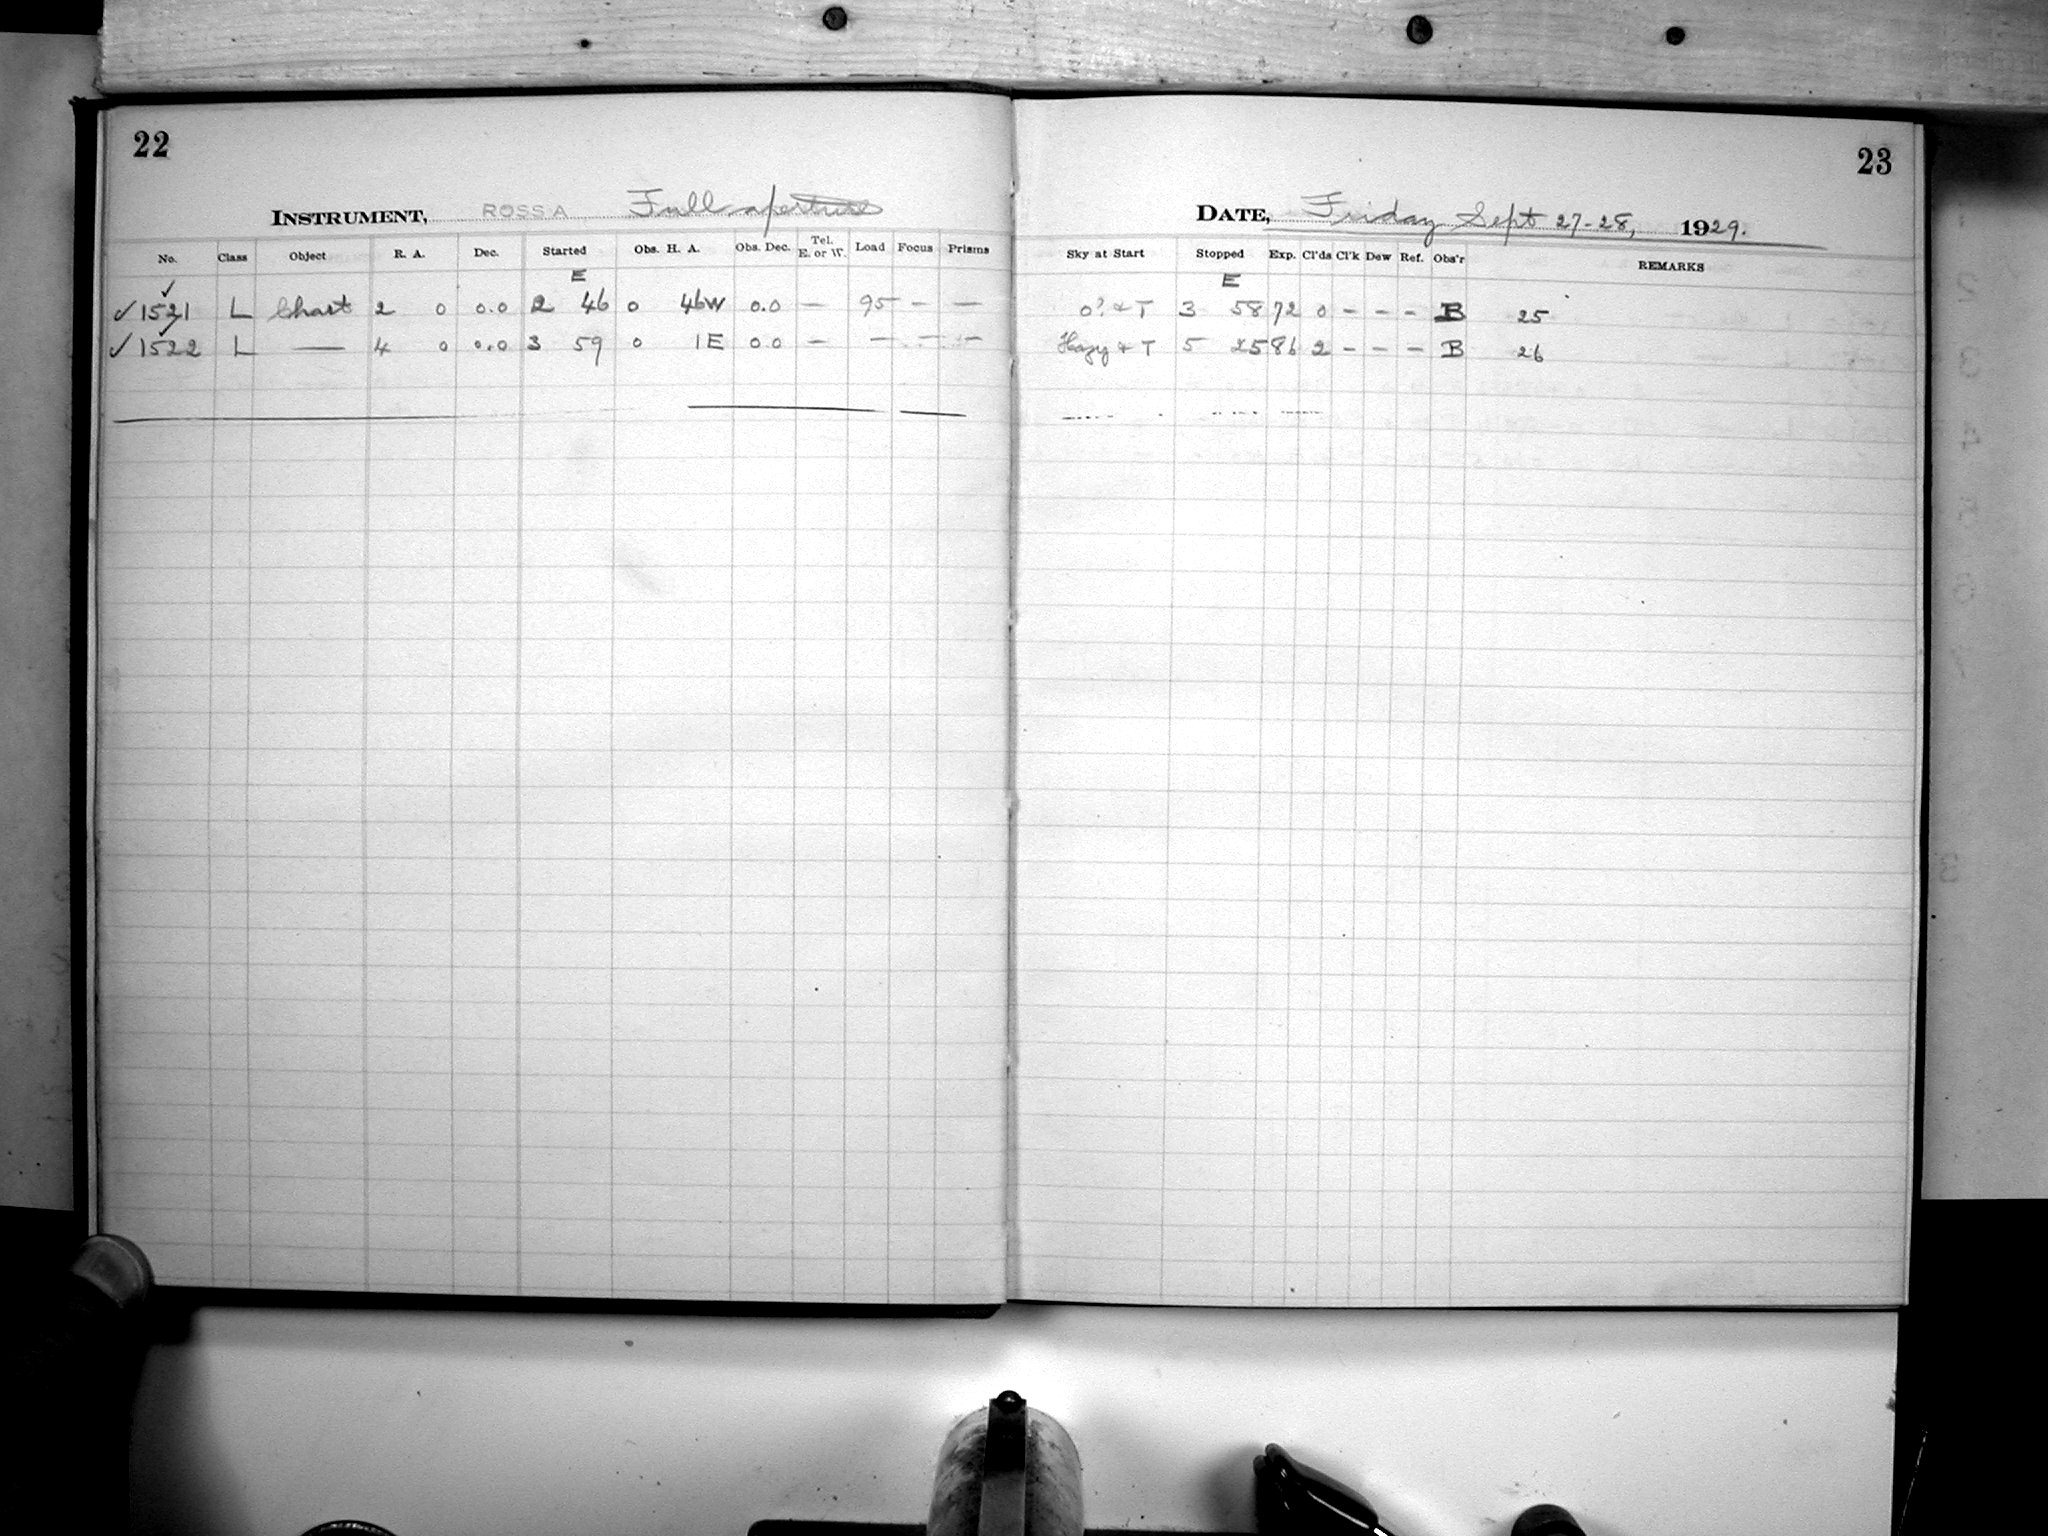 22
INSTRUMENT, ROSS A Full aperture
No. Class Object R. A. Dec. Started Obs. H. A. Obs. Dec. Tel. E. or W. Load Focus Prisms
E
✓ 1521 L Chart 2 0 0.0 2 46 0 46W 0.0 — 95 — —
✓ 1522 L — 4 0 0.0 3 59 0 1E 0.0 — — — —
23
DATE, Friday Sept 27-28, 1929.
Sky at Start Stopped Exp. Cl'ds Cl'k Dew Ref. Obs'r REMARKS
E
0? & T 3 58 72 0 — — — B 25
Hazy & T 5 25 86 2 — — — B 26